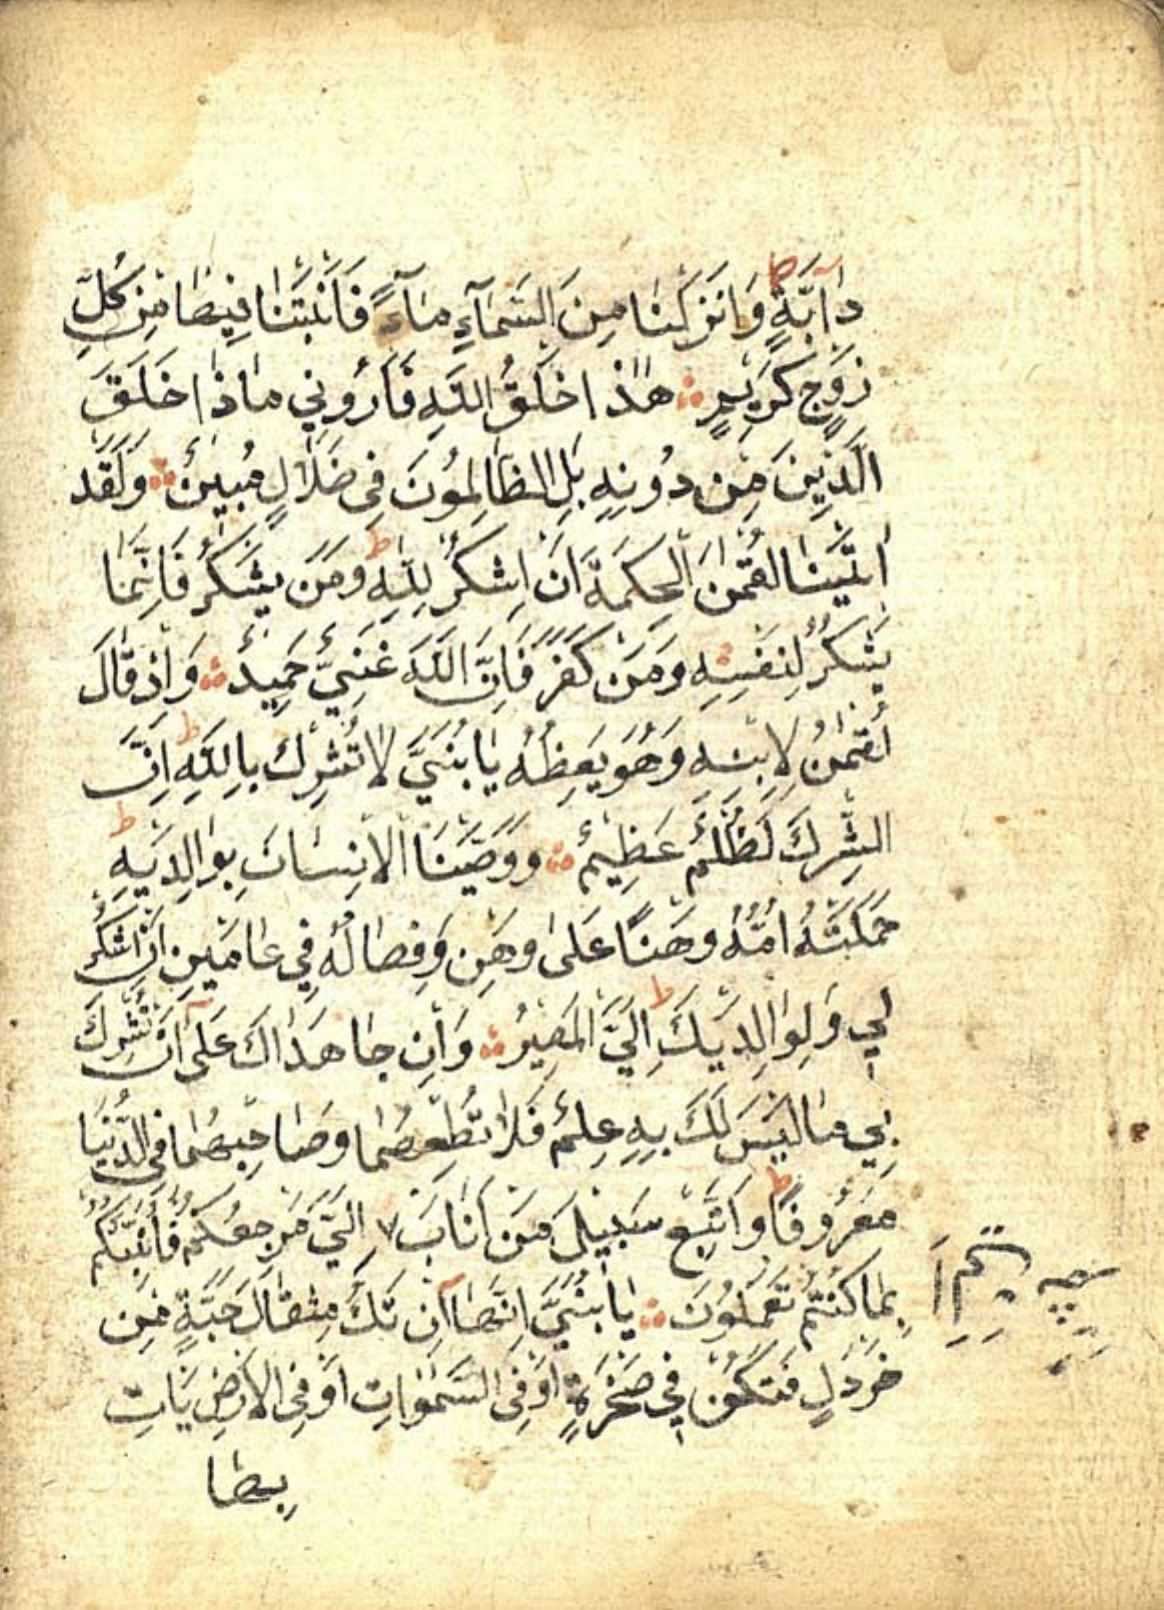 دَآبَّةٍ ط وَاَنْزَلْنَا مِنَ السَّمَآءِ مَآءً فَاَنْبَتْنَا فِيهَا مِنْ كُلِّ
زَوْجٍ كَرِيمٍ ۞ هٰذَا خَلْقُ اللّٰهِ فَاَرُونِي مَاذَا خَلَقَ
الَّذِينَ مِنْ دُونِهِ بَلِ الظَّالِمُونَ فِي ضَلَالٍ مُبِينٍ ۞ وَلَقَدْ
اٰتَيْنَا لُقْمٰنَ الْحِكْمَةَ اَنْ اشْكُرْ لِلّٰهِ ط وَمَنْ يَشْكُرْ فَاِنَّمَا
يَشْكُرُ لِنَفْسِهِ وَمَنْ كَفَرَ فَاِنَّ اللّٰهَ غَنِيٌّ حَمِيدٌ ۞ وَاِذْ قَالَ
لُقْمٰنُ لِابْنِهِ وَهُوَ يَعِظُهُ يَابُنَيَّ لَا تُشْرِكْ بِاللّٰهِ ط اِنَّ
الشِّرْكَ لَظُلْمٌ عَظِيمٌ ۞ وَوَصَّيْنَا الْاِنْسَانَ بِوَالِدَيْهِ ط
حَمَلَتْهُ اُمُّهُ وَهْنًا عَلٰى وَهْنٍ وَفِصَالُهُ فِي عَامَيْنِ اَنِ اشْكُرْ
لِي وَلِوَالِدَيْكَ ط اِلَيَّ الْمَصِيرُ ۞ وَاِنْ جَاهَدَاكَ عَلٰٓى اَنْ تُشْرِكَ
بِي مَا لَيْسَ لَكَ بِهِ عِلْمٌ فَلَا تُطِعْهُمَا وَصَاحِبْهُمَا فِي الدُّنْيَا
مَعْرُوفًا ط وَاتَّبِعْ سَبِيلَ مَنْ اَنَابَ اِلَيَّ مَرْجِعُكُمْ فَاُنَبِّئُكُمْ
بِمَا كُنْتُمْ تَعْمَلُونَ ۞ يَابُنَيَّ اِنَّهَآ اِنْ تَكُ مِثْقَالَ حَبَّةٍ مِنْ
خَرْدَلٍ فَتَكُنْ فِي صَخْرَةٍ اَوْ فِي السَّمٰوَاتِ اَوْ فِي الْاَرْضِ يَاْتِ
بِهَا